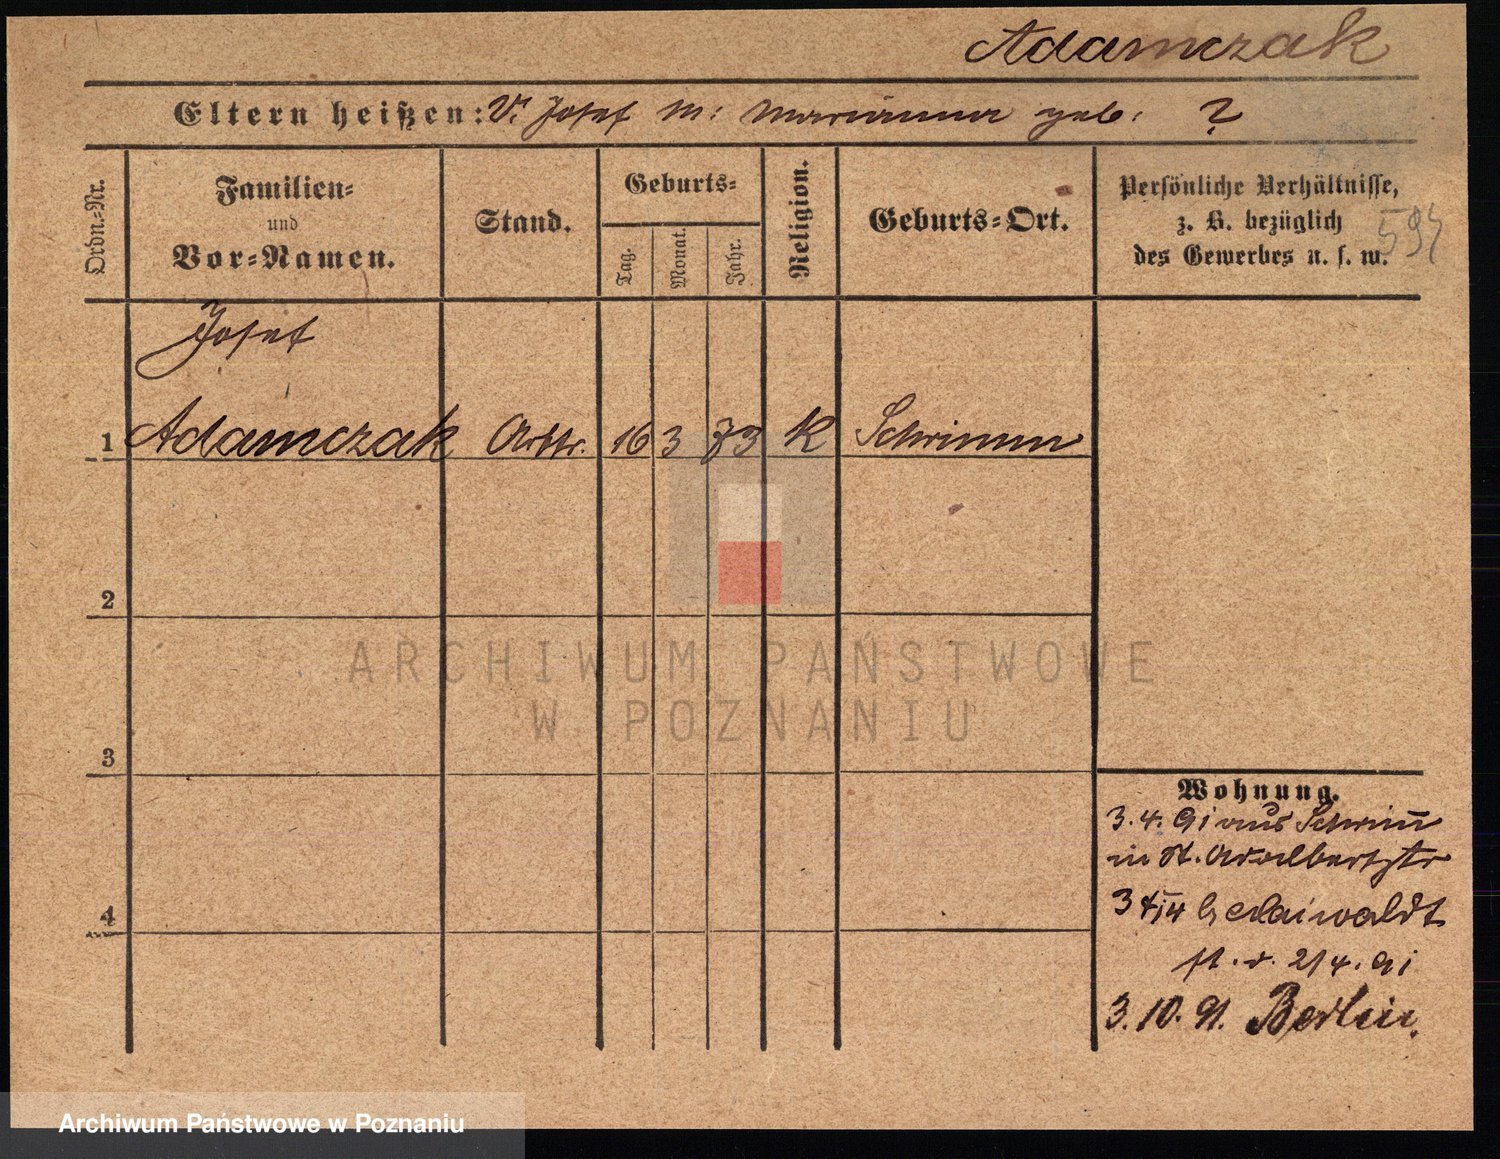 Adamczak
Eltern heißen: V. Josef M: Marianna geb: ?
Ordn.-Nr.
Familien-
und
Vor-Namen.
Stand.
Geburts-
Tag.
Monat.
Jahr.
Religion.
Geburts-Ort.
Persönliche Verhältnisse,
z. B. bezüglich
des Gewerbes u. s. w.
Josef
1 Adamczak Arbtr. 16 3 73 K Schrimm
2
3
4
ARCHIWUM PAŃSTWOWE
W POZNANIU
Wohnung.
3.4.91 aus Schrim̅
in St. Adalbertstr
st. v. 2/4.91
3.10.91. Berlin.
Archiwum Państwowe w Poznaniu